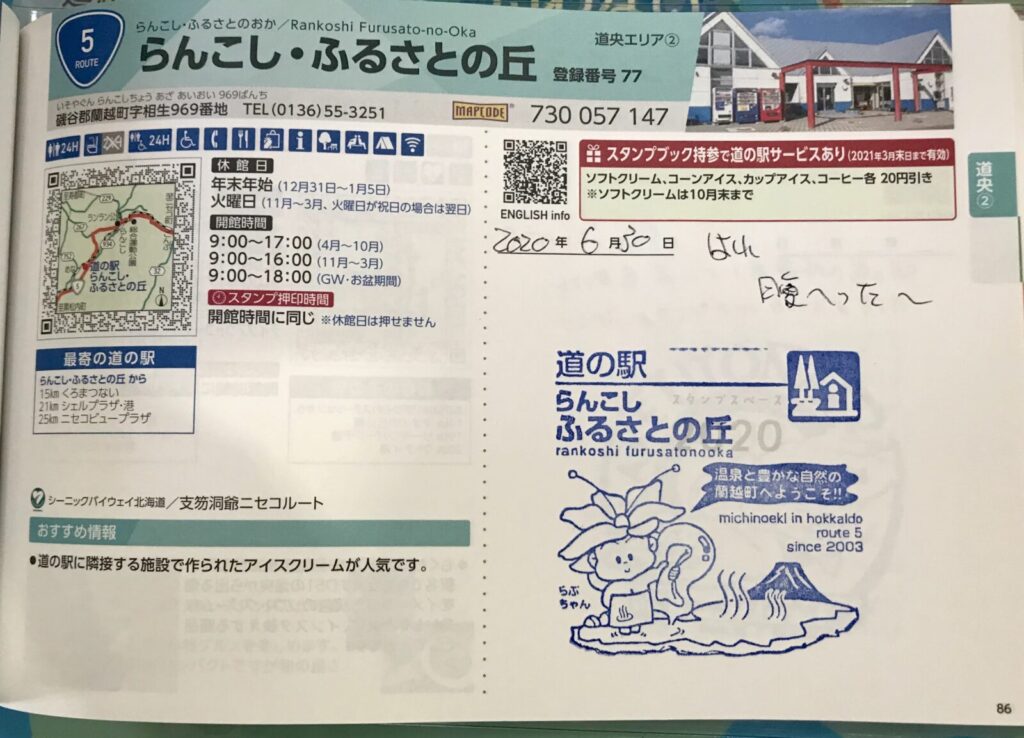 5
ROUTE
らんこし・ふるさとのおか／Rankoshi Furusato-no-Oka
らんこし・ふるさとの丘 登録番号 77
道央エリア②
いそやぐん らんこしちょう あざ あいおい 969ばんち
磯谷郡蘭越町字相生969番地 TEL(0136)55-3251
MAPCODE® 730 057 147
24H 24H
休館日
年末年始(12月31日〜1月5日)
火曜日(11月〜3月、火曜日が祝日の場合は翌日)
開館時間
9:00〜17:00(4月〜10月)
9:00〜16:00(11月〜3月)
9:00〜18:00(GW・お盆期間)
スタンプ押印時間
開館時間に同じ ※休館日は押せません
道の駅
らんこし・
ふるさとの丘
最寄の道の駅
らんこし・ふるさとの丘 から
15km くろまつない
21km シェルプラザ・港
25km ニセコビュープラザ
シーニックバイウェイ北海道／支笏洞爺ニセコルート
おすすめ情報
●道の駅に隣接する施設で作られたアイスクリームが人気です。
ENGLISH info
スタンプブック持参で道の駅サービスあり(2021年3月末日まで有効)
ソフトクリーム、コーンアイス、カップアイス、コーヒー各 20円引き
※ソフトクリームは10月末まで
道央②
2020年 6月30日 はれ
へった〜
道の駅
らんこし
スタンプスペース
ふるさとの丘
rankoshi furusatonooka
温泉と豊かな自然の
蘭越町へようこそ!!
michinoeki in hokkaido
route 5
since 2003
らぶ
ちゃん
86